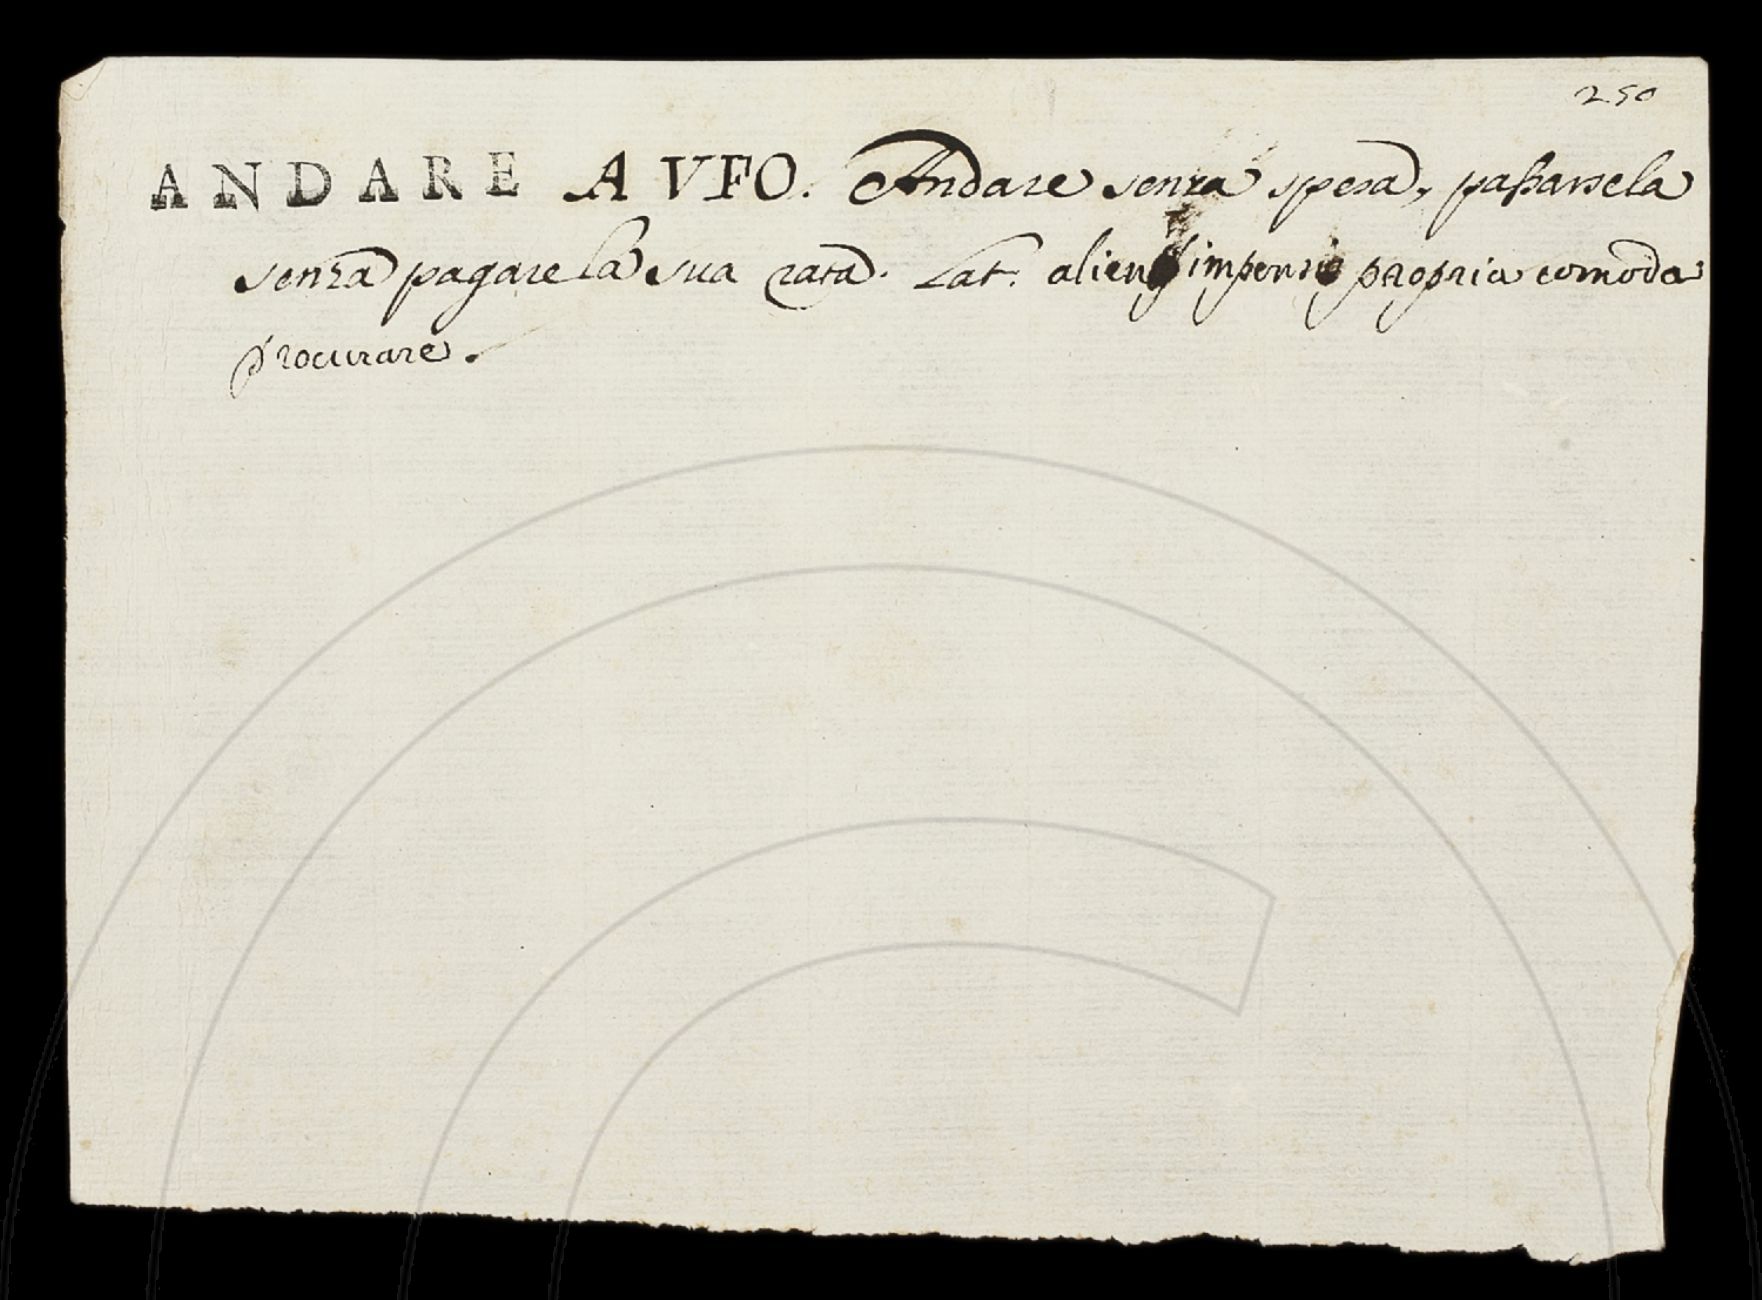 250
ANDARE A VFO. Andare senza spesa, passarsela
senza pagare la sua rata. Lat. impensis propria comoda
procurare.